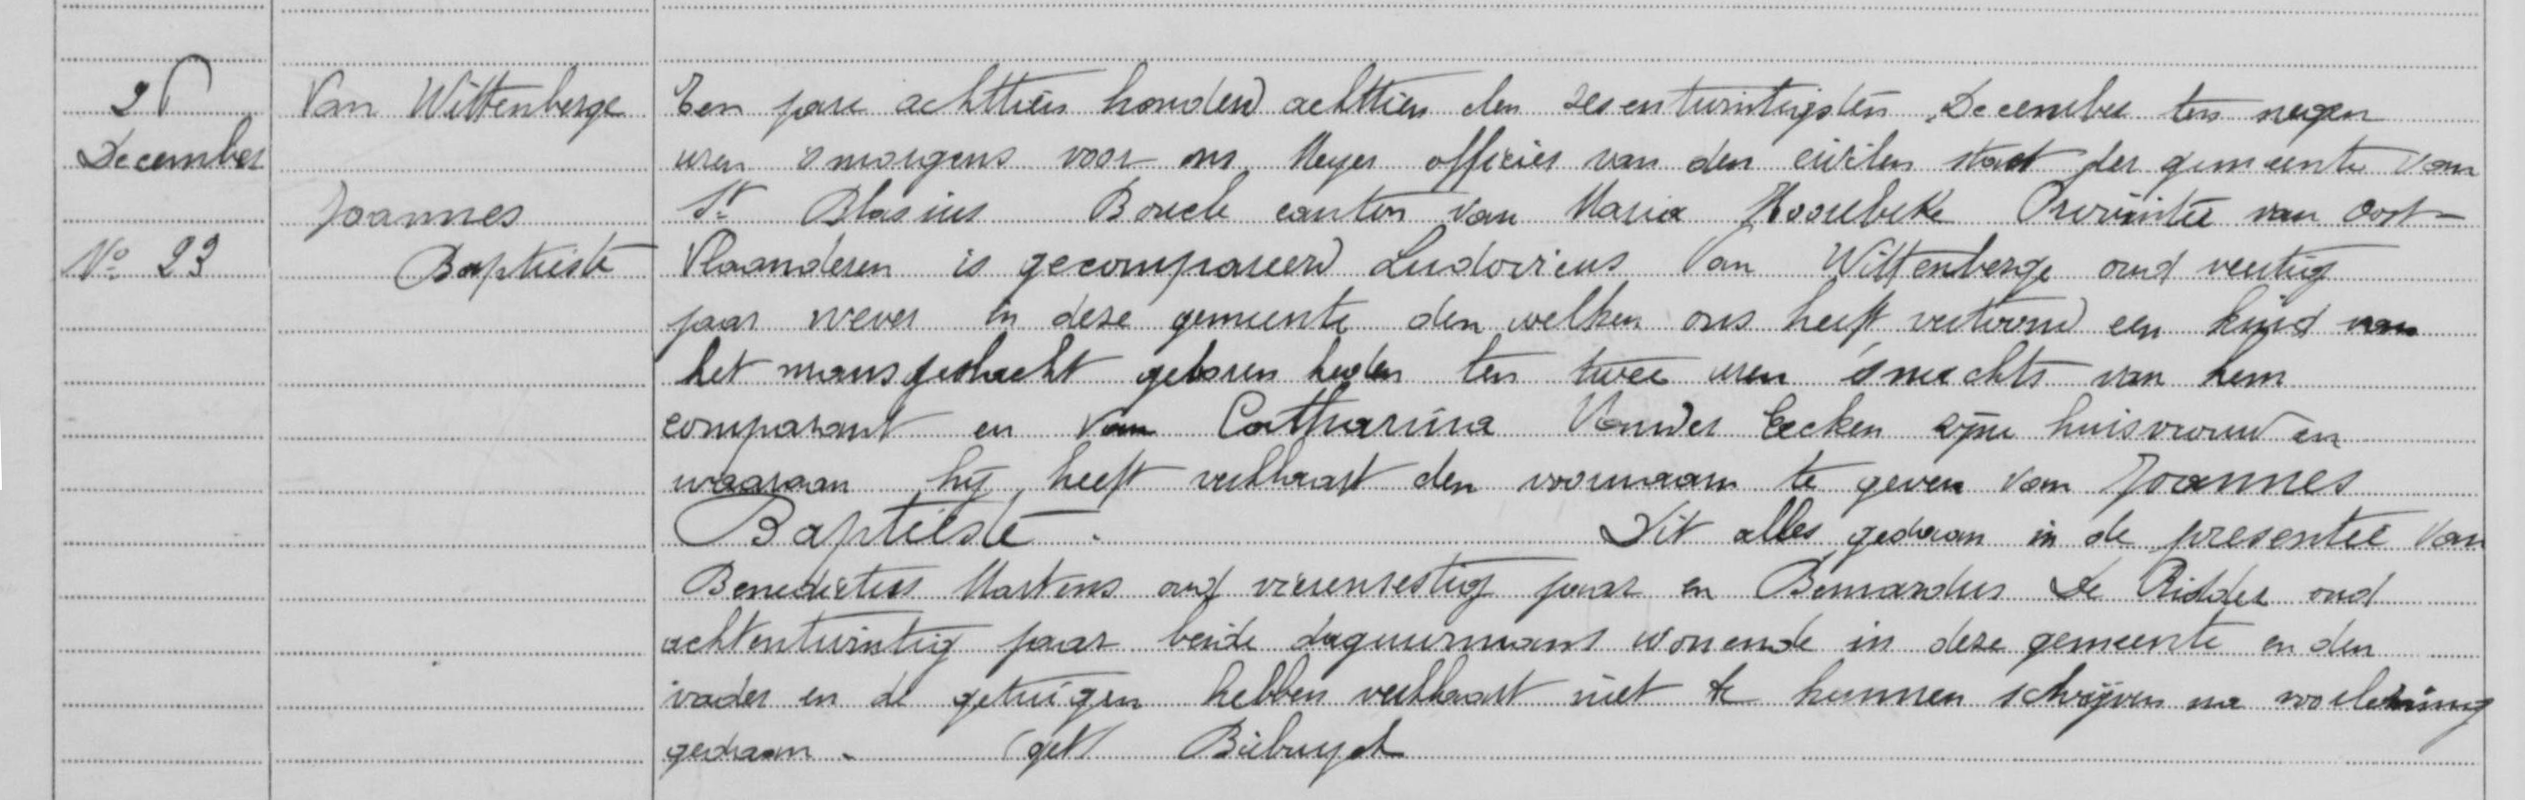 26 Van Wittenberge Een jare achttien honderd achttien den zesentwintigsten December ten negen
December uren 'smorgens voor ons Meyer officier van den civilen staat der gemeente van
Joannes St Blasius Boucle canton van Maria Hoorebeke Provintie van Oost-
No 23 Baptiste Vlaanderen is gecompareerd Ludovicus Van Wittenberge oud veertig
jaar wever in deze gemeente den welken ons heeft vertoond een kind van
het mansgeslacht geboren heden ten twee uren 'snachts van hem
comparant en van Catharina Vander Eecken zijne huisvrouw en
waaraan hij heeft verklaart den voornaam te geven van Joannes
Baptiste. Dit alles gedaan in de presentie van
Benedictus Martens oud vierenzestig jaar en Bernardus De Ridder oud
achtentwintig jaar beide daguurmans wonende in deze gemeente en den
vader en de getuigen hebben verklaart niet te kunnen schrijven na voorlezing
gedaan. (get) Biebuyck